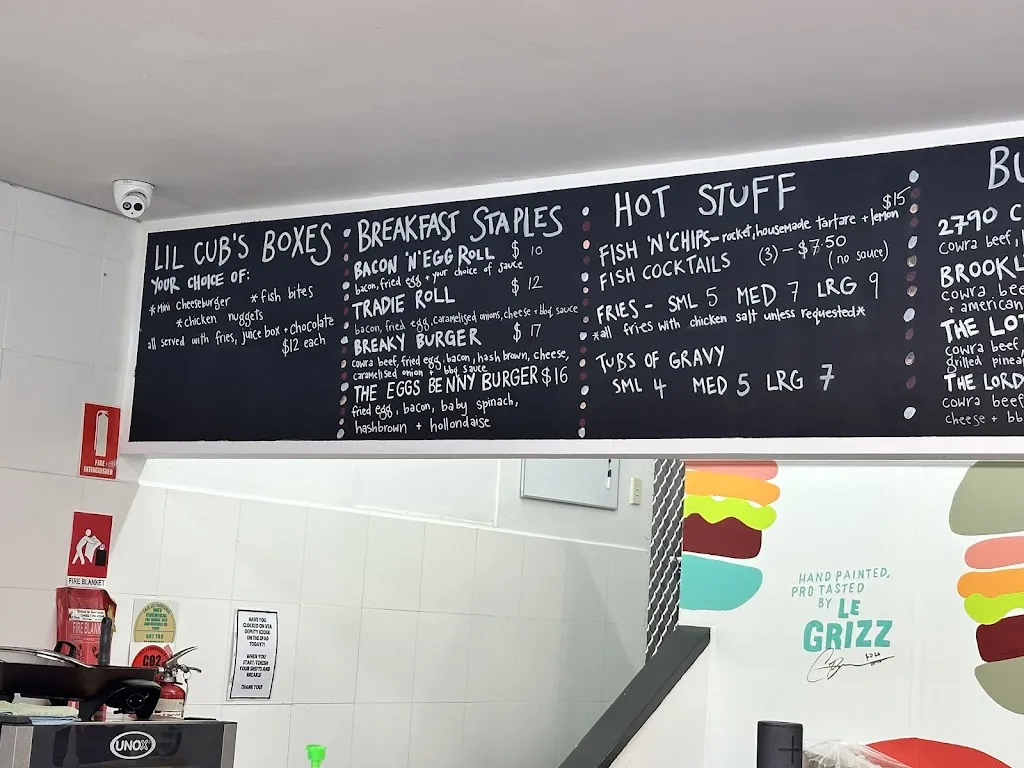 LIL CUB'S BOXES
YOUR CHOICE OF:
*Mini cheeseburger *fish bites
*chicken nuggets
all served with fries, juice box + chocolate
$12 each
BREAKFAST STAPLES
BACON 'N' EGG ROLL $10
bacon, fried egg + your choice of sauce
TRADIE ROLL $12
bacon, fried egg, caramelised onions, cheese + bbq sauce
BREAKY BURGER $17
cowra beef, fried egg, bacon, hash brown, cheese,
caramelised onion + bbq sauce
THE EGGS BENNY BURGER $16
fried egg, bacon, baby spinach,
hashbrown + hollondaise
HOT STUFF
$15
FISH 'N' CHIPS - rocket, housemade tartare + lemon
FISH COCKTAILS (3) - $7.50
(no sauce)
FRIES - SML 5 MED 7 LRG 9
*all fries with chicken salt unless requested*
TUBS OF GRAVY
SML 4 MED 5 LRG 7
BU
2790 C
cowra beef, 
BROOKL
cowra bee
+ american
THE LOT
cowra beef,
grilled pineap
THE LORD
cowra beef
cheese + bb
FIRE
EXTINGUISHER
FIRE BLANKET
FIRE BLAN
CO2
HAVE YOU
CLOCKED ON VIA
DEPUTY KIOSK
ON THE IPAD
TODAY?!
WHEN YOU
START/FINISH
YOUR SHIFTS AND
BREAKS!
THANK YOU!
UNOX
HAND PAINTED,
PRO TASTED
BY LE
GRIZZ